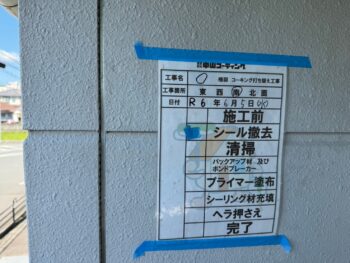 ㈱中山コーティング
工事名 〇 様邸 コーキング打ち替え工事
工事箇所 東 西 南 北 面
日付 R6年6月5日(水)
施工前
シール撤去
清掃
バックアップ材 及び
ボンドブレーカー
プライマー塗布
シーリング材充填
ヘラ押さえ
完了